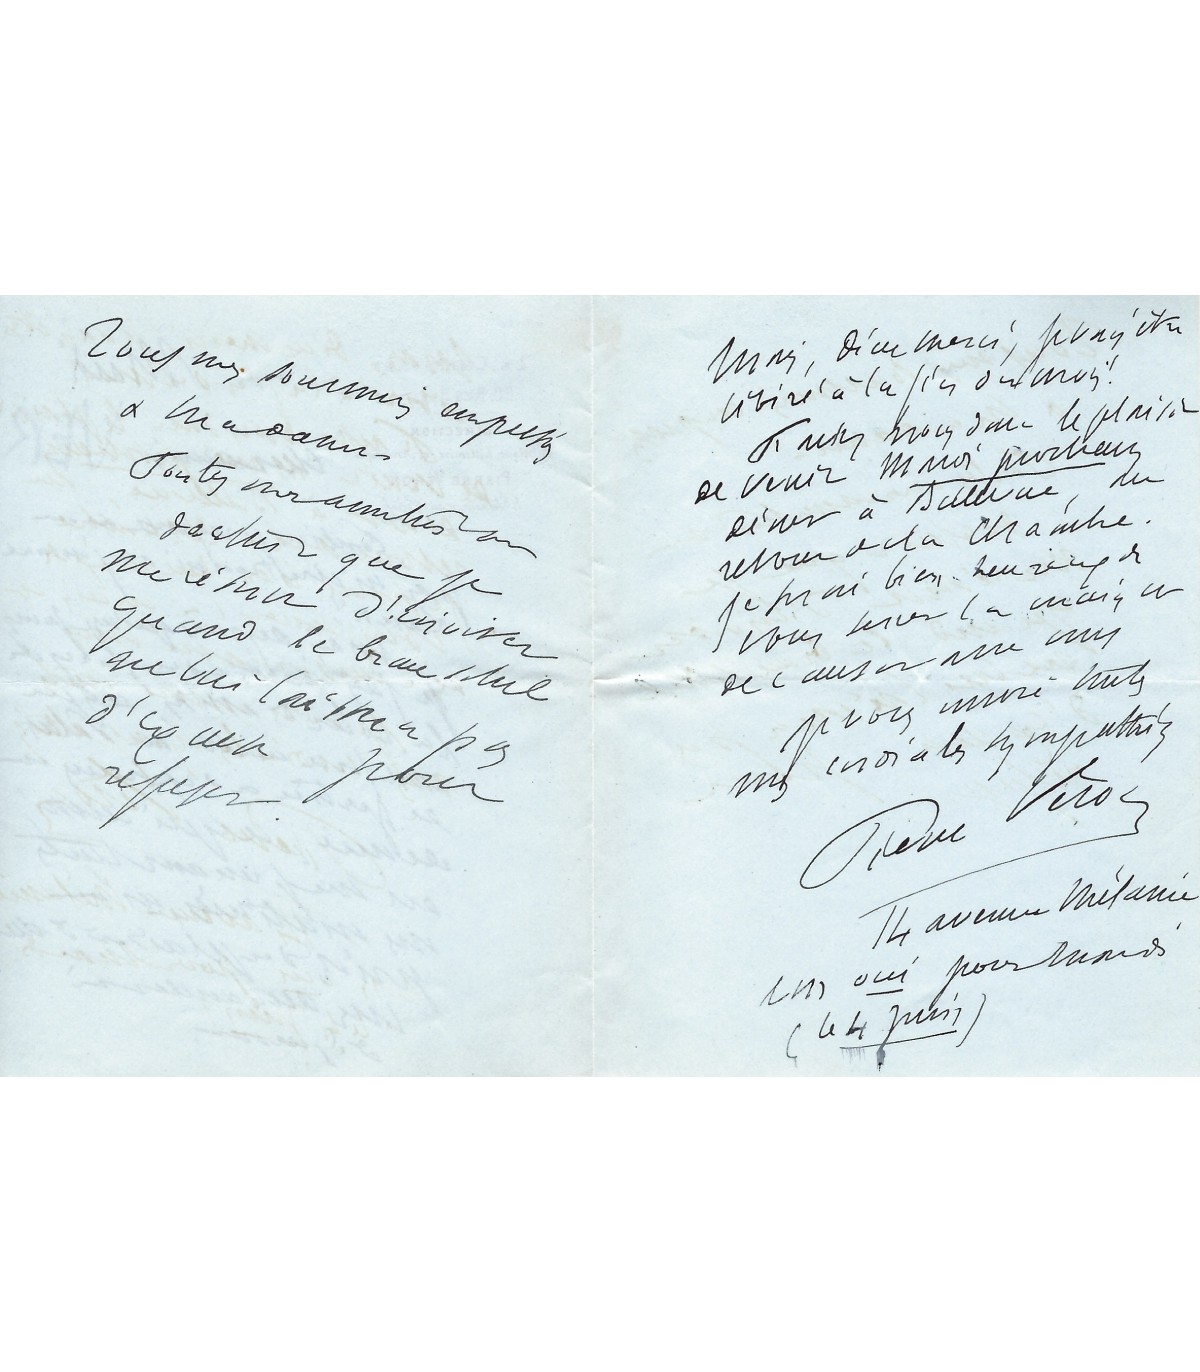 Tous mes souvenirs empressés
à Madame.
Toutes mes amitiés au
docteur que je
me réserve d'inviter
quand le beau soleil
ne lui laissera pas
d'excuse pour
refuser.
Mais, Dieu merci, je vais être
libéré à la fin du mois.
Faites nous donc le plaisir
de venir Mardi prochain
dîner à Bellevue, au
retour de la Chambre.
Je serai bien heureux de
vous serrer la main et
de causer avec vous
Je vous envoie toutes
mes cordiales sympathies
Pierre Véron
14 avenue Mélanie
oui pour Mardi
(le 4 juin)